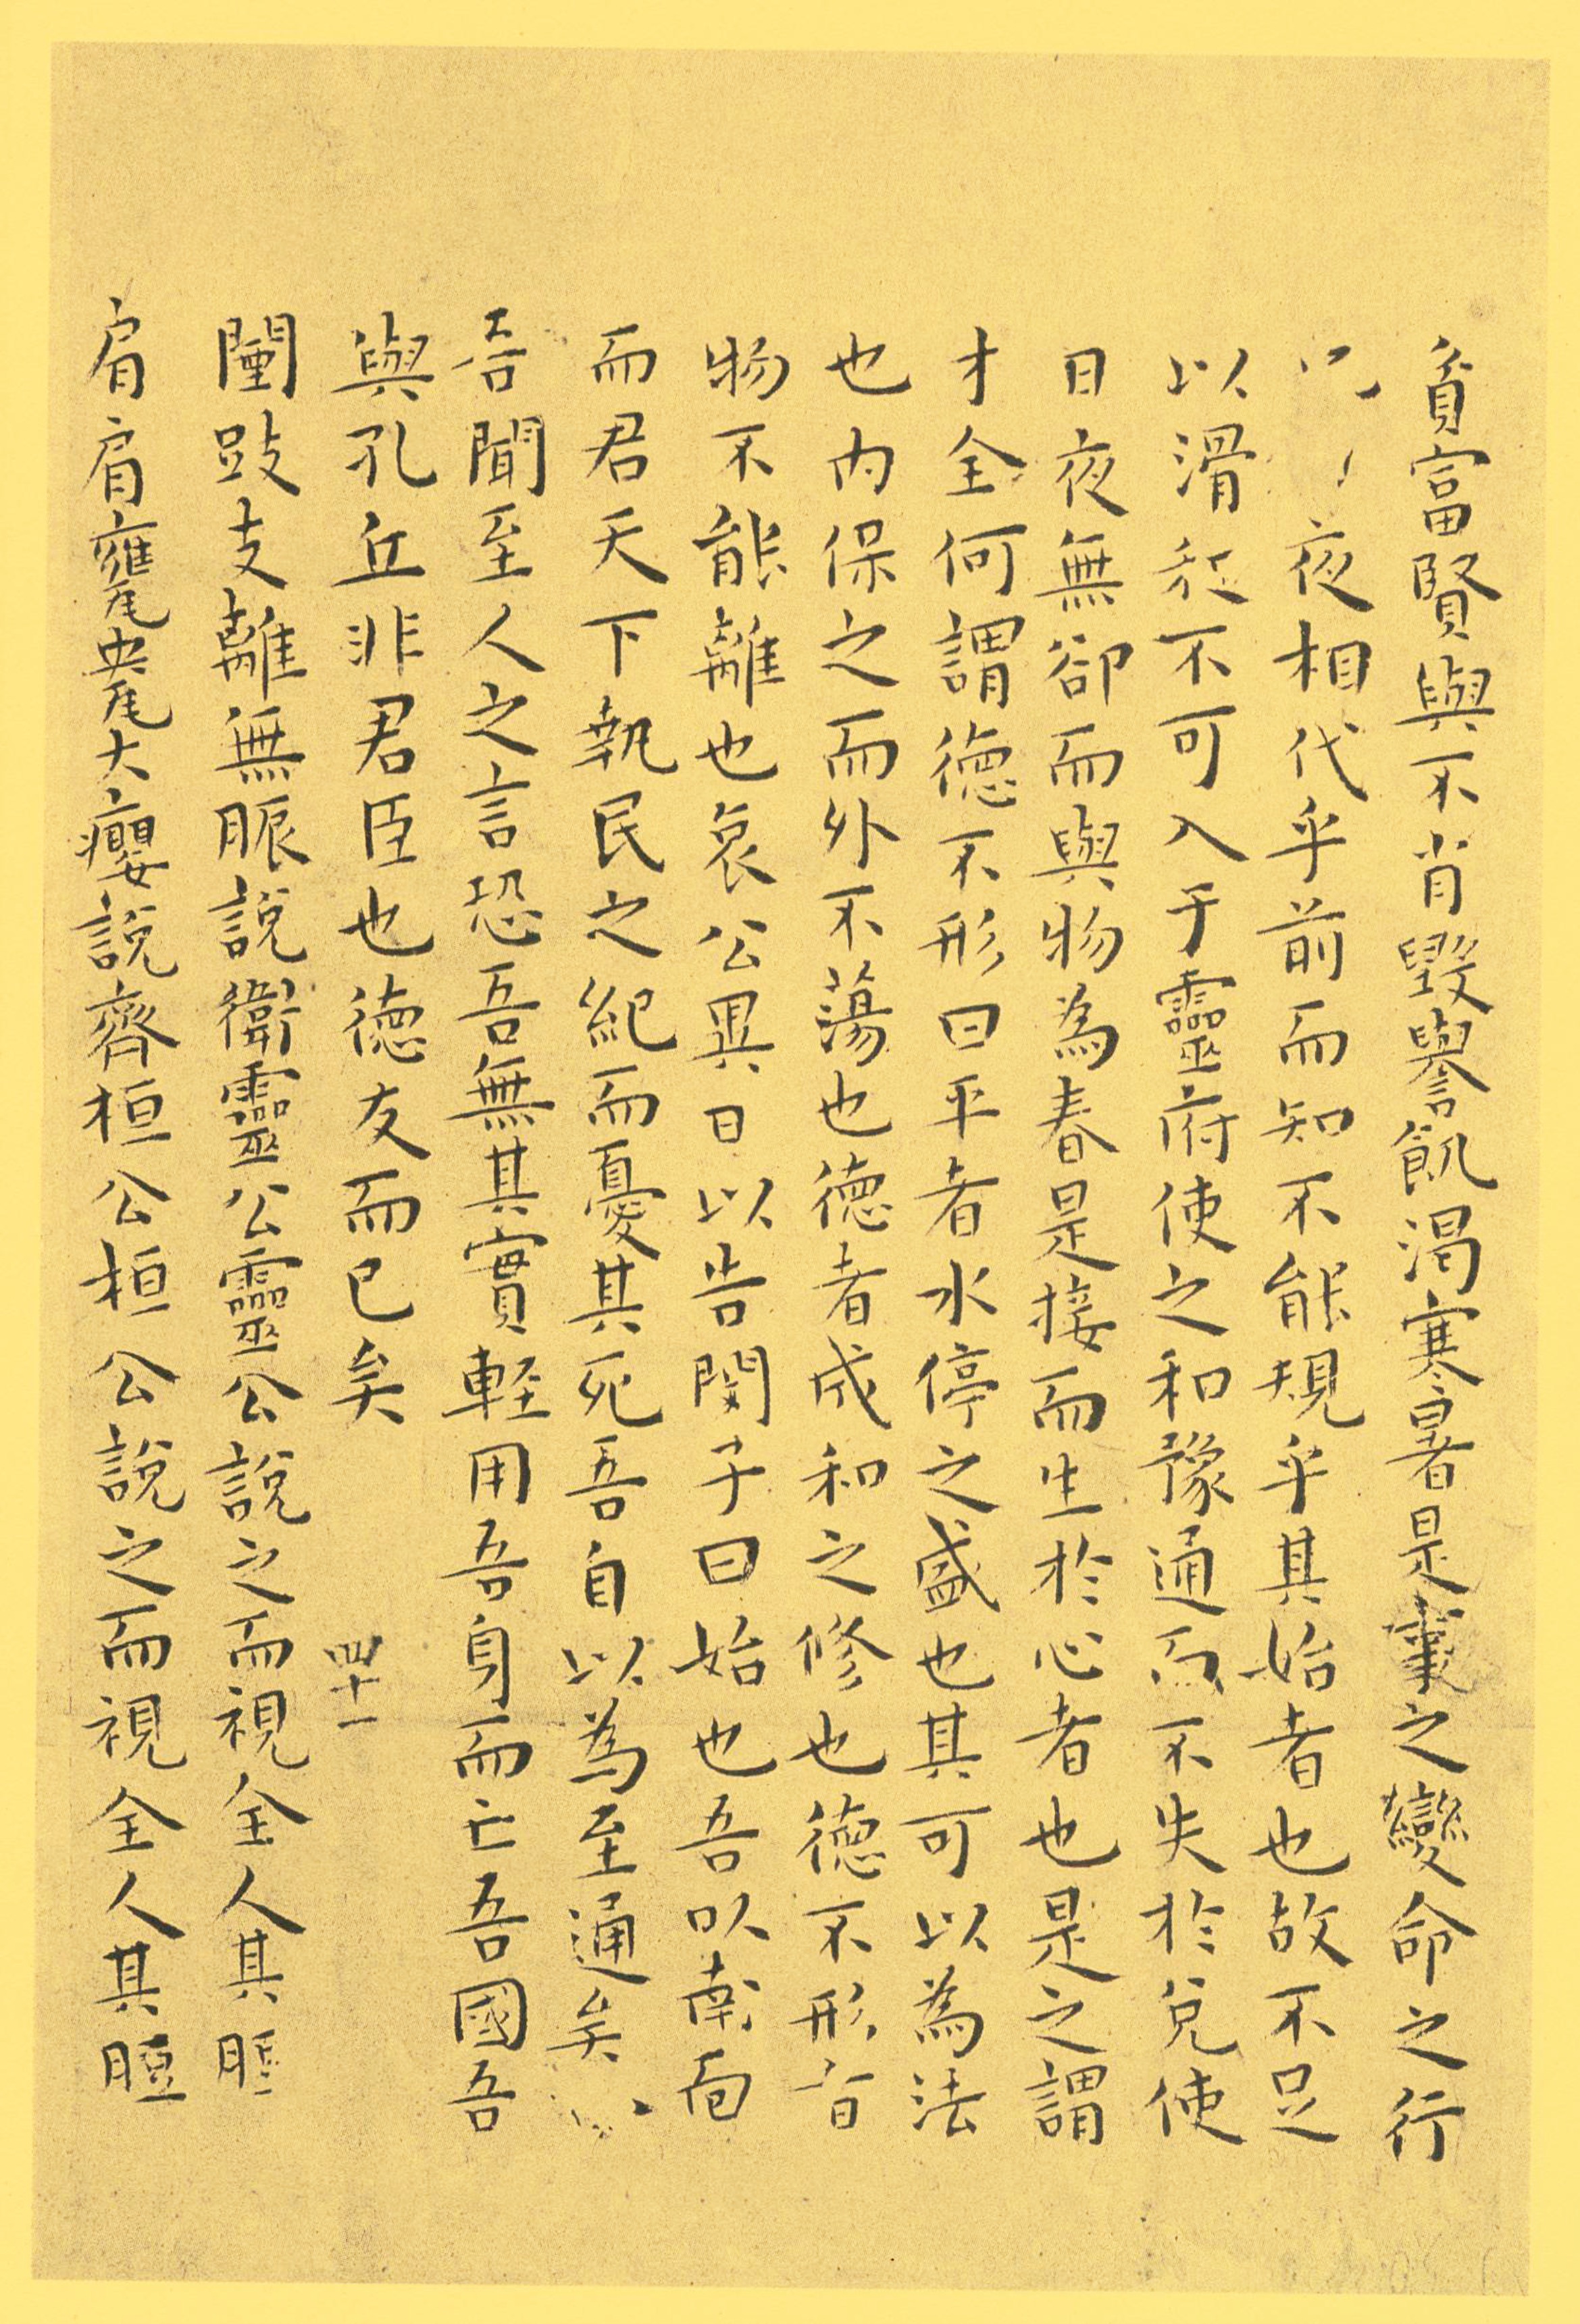 貧富賢與不肖毀譽飢渴寒暑是事之變命之行
夜相代乎前而知不能規乎其始者也故不足
以滑和不可入于靈府使之和豫通而不失於兌使
日夜無郤而與物為春是接而生於心者也是之謂
才全何謂德不形曰平者水停之盛也其可以為法
也內保之而外不蕩也德者成和之修也德不形者
物不能離也哀公異日以告閔子曰始也吾以南面
而君天下執民之紀而憂其死吾自以為至通矣
吾聞至人之言恐吾無其實輕用吾身而亡吾國吾
與孔丘非君臣也德友而已矣
四十一
闉跂支離無脤說衛靈公靈公說之而視全人其脰
肩肩甕㼜大癭說齊桓公桓公說之而視全人其脰